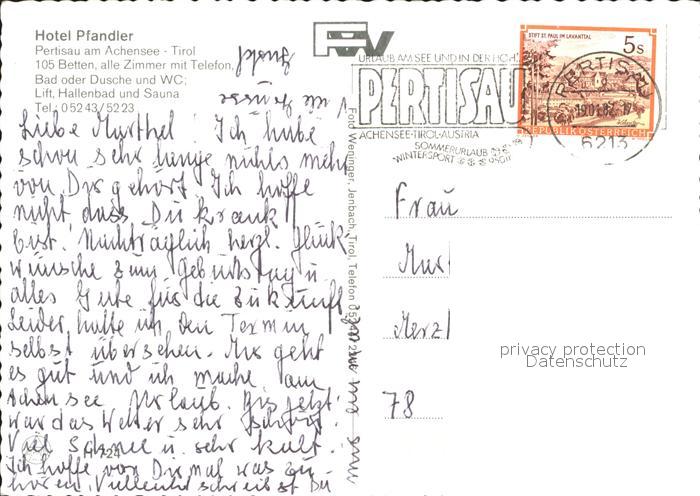 Hotel Pfandler
Pertisau am Achensee - Tirol
105 Betten, alle Zimmer mit Telefon,
Bad oder Dusche und WC;
Lift, Hallenbad und Sauna
Tel. 05243/5223
Liebe Marthel! Ich habe
schon sehr lange nichts mehr
von Dir gehört. Ich hoffe
nicht, dass Du krank
bist. Nachträglich herzl. Glück-
wünsche zum Geburtstag u.
alles Gute für die Zukunft
Leider hatte ich den Termin
selbst übersehen. Mir geht
es gut und ich mache am
Achensee Urlaub. Bis jetzt
war das Wetter sehr schön.
Viel Schnee u. sehr kalt.
Ich hoffe von Dir mal was zu
hören. Vielleicht schreibst Du
Foto Weninger, Jenbach, Tirol, Telefon 05244
URLAUB AM SEE UND IN DER HÖHE
PERTISAU
ACHENSEE-TIROL-AUSTRIA
SOMMERURLAUB
WINTERSPORT
STIFT ST. PAUL IM LAVANTTAL
5 S
REPUBLIK ÖSTERREICH
PERTISAU
19.01.87
6213
Frau
Mar
Merzl
78
privacy protection
Datenschutz